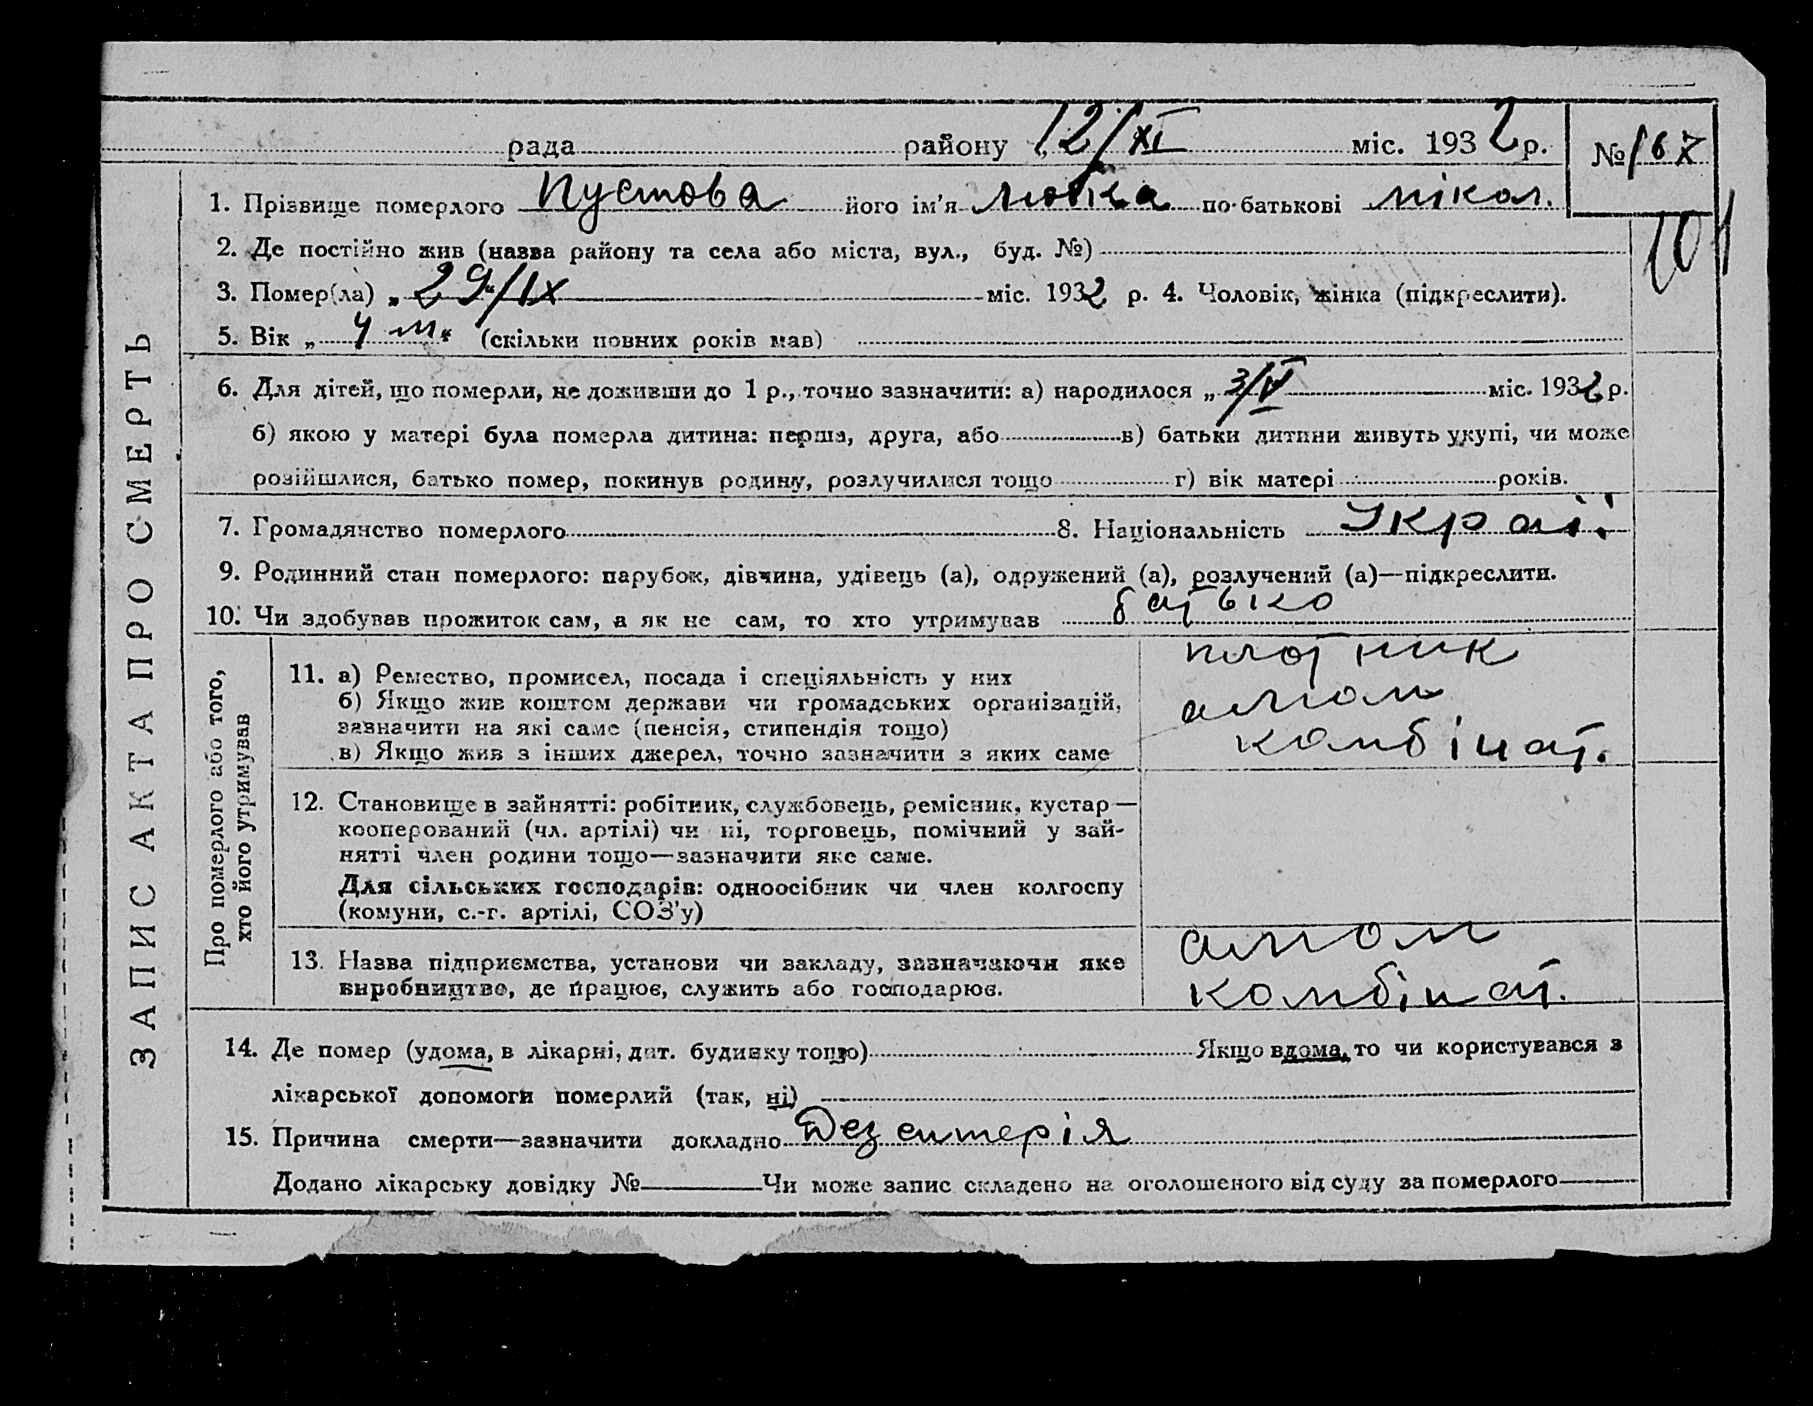 рада районy 12/XI міс. 1932 р. № 167
1. Прізвище померлого Пустова його ім'я Любка по-батькові Мікол.
101
2. Де постійно жив (назва району та села або міста, вул., буд. №)
3. Помер(ла) „ 29/IX міс. 1932 р. 4. Чоловік, жінка (підкреслити).
5. Вік „ 4 м. (скільки повних років мав)
6. Для дітей, що померли, не доживши до 1 р., точно зазначити: а) народилося „ 3/V міс. 1932 р.
б) якою у матері була померла дитина: перша, друга, або в) батьки дитини живуть укупі, чи може
розійшлися, батько помер, покинув родину, розлучилися тощо г) вік матері років.
7. Громадянство померлого 8. Національність Украї.
9. Родинний стан померлого: парубок, дівчина, удівець (а), одружений (а), розлучений (а)—підкреслити.
10. Чи здобував прожиток сам, а як не сам, то хто утримував батько
ЗАПИС АКТА ПРО СМЕРТЬ
Про померлого або того,
хто його утримував
11. а) Ремество, промисел, посада і спеціяльність у них
б) Якщо жив коштом держави чи громадських організацій,
зазначити на які саме (пенсія, стипендія тощо)
в) Якщо жив з інших джерел, точно зазначити з яких саме
плотник
алюм
комбінат.
12. Становище в зайнятті: робітник, службовець, ремісник, кустар—
кооперований (чл. артілі) чи ні, торговець, помічний у зай-
нятті член родини тощо—зазначити яке саме.
Для сільських господарів: одноосібник чи член колгоспу
(комуни, с.-г. артілі, СОЗ'у)
13. Назва підприємства, установи чи закладу, зазначаючи яке
виробництво, де працює, служить або господарює.
алюм
комбінат.
14. Де помер (удома, в лікарні, дит. будинку тощо) Якщо вдома, то чи користувався з
лікарської допомоги померлий (так, ні)
15. Причина смерти—зазначити докладно Дезентерія
Додано лікарську довідку № Чи може запис складено на оголошеного від суду за померлого